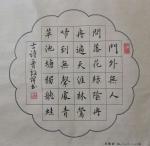 門外無人
問落花綠陰冉
冉遍天涯林鶯
啼到無聲處青
草池塘獨聽蛙
古詩